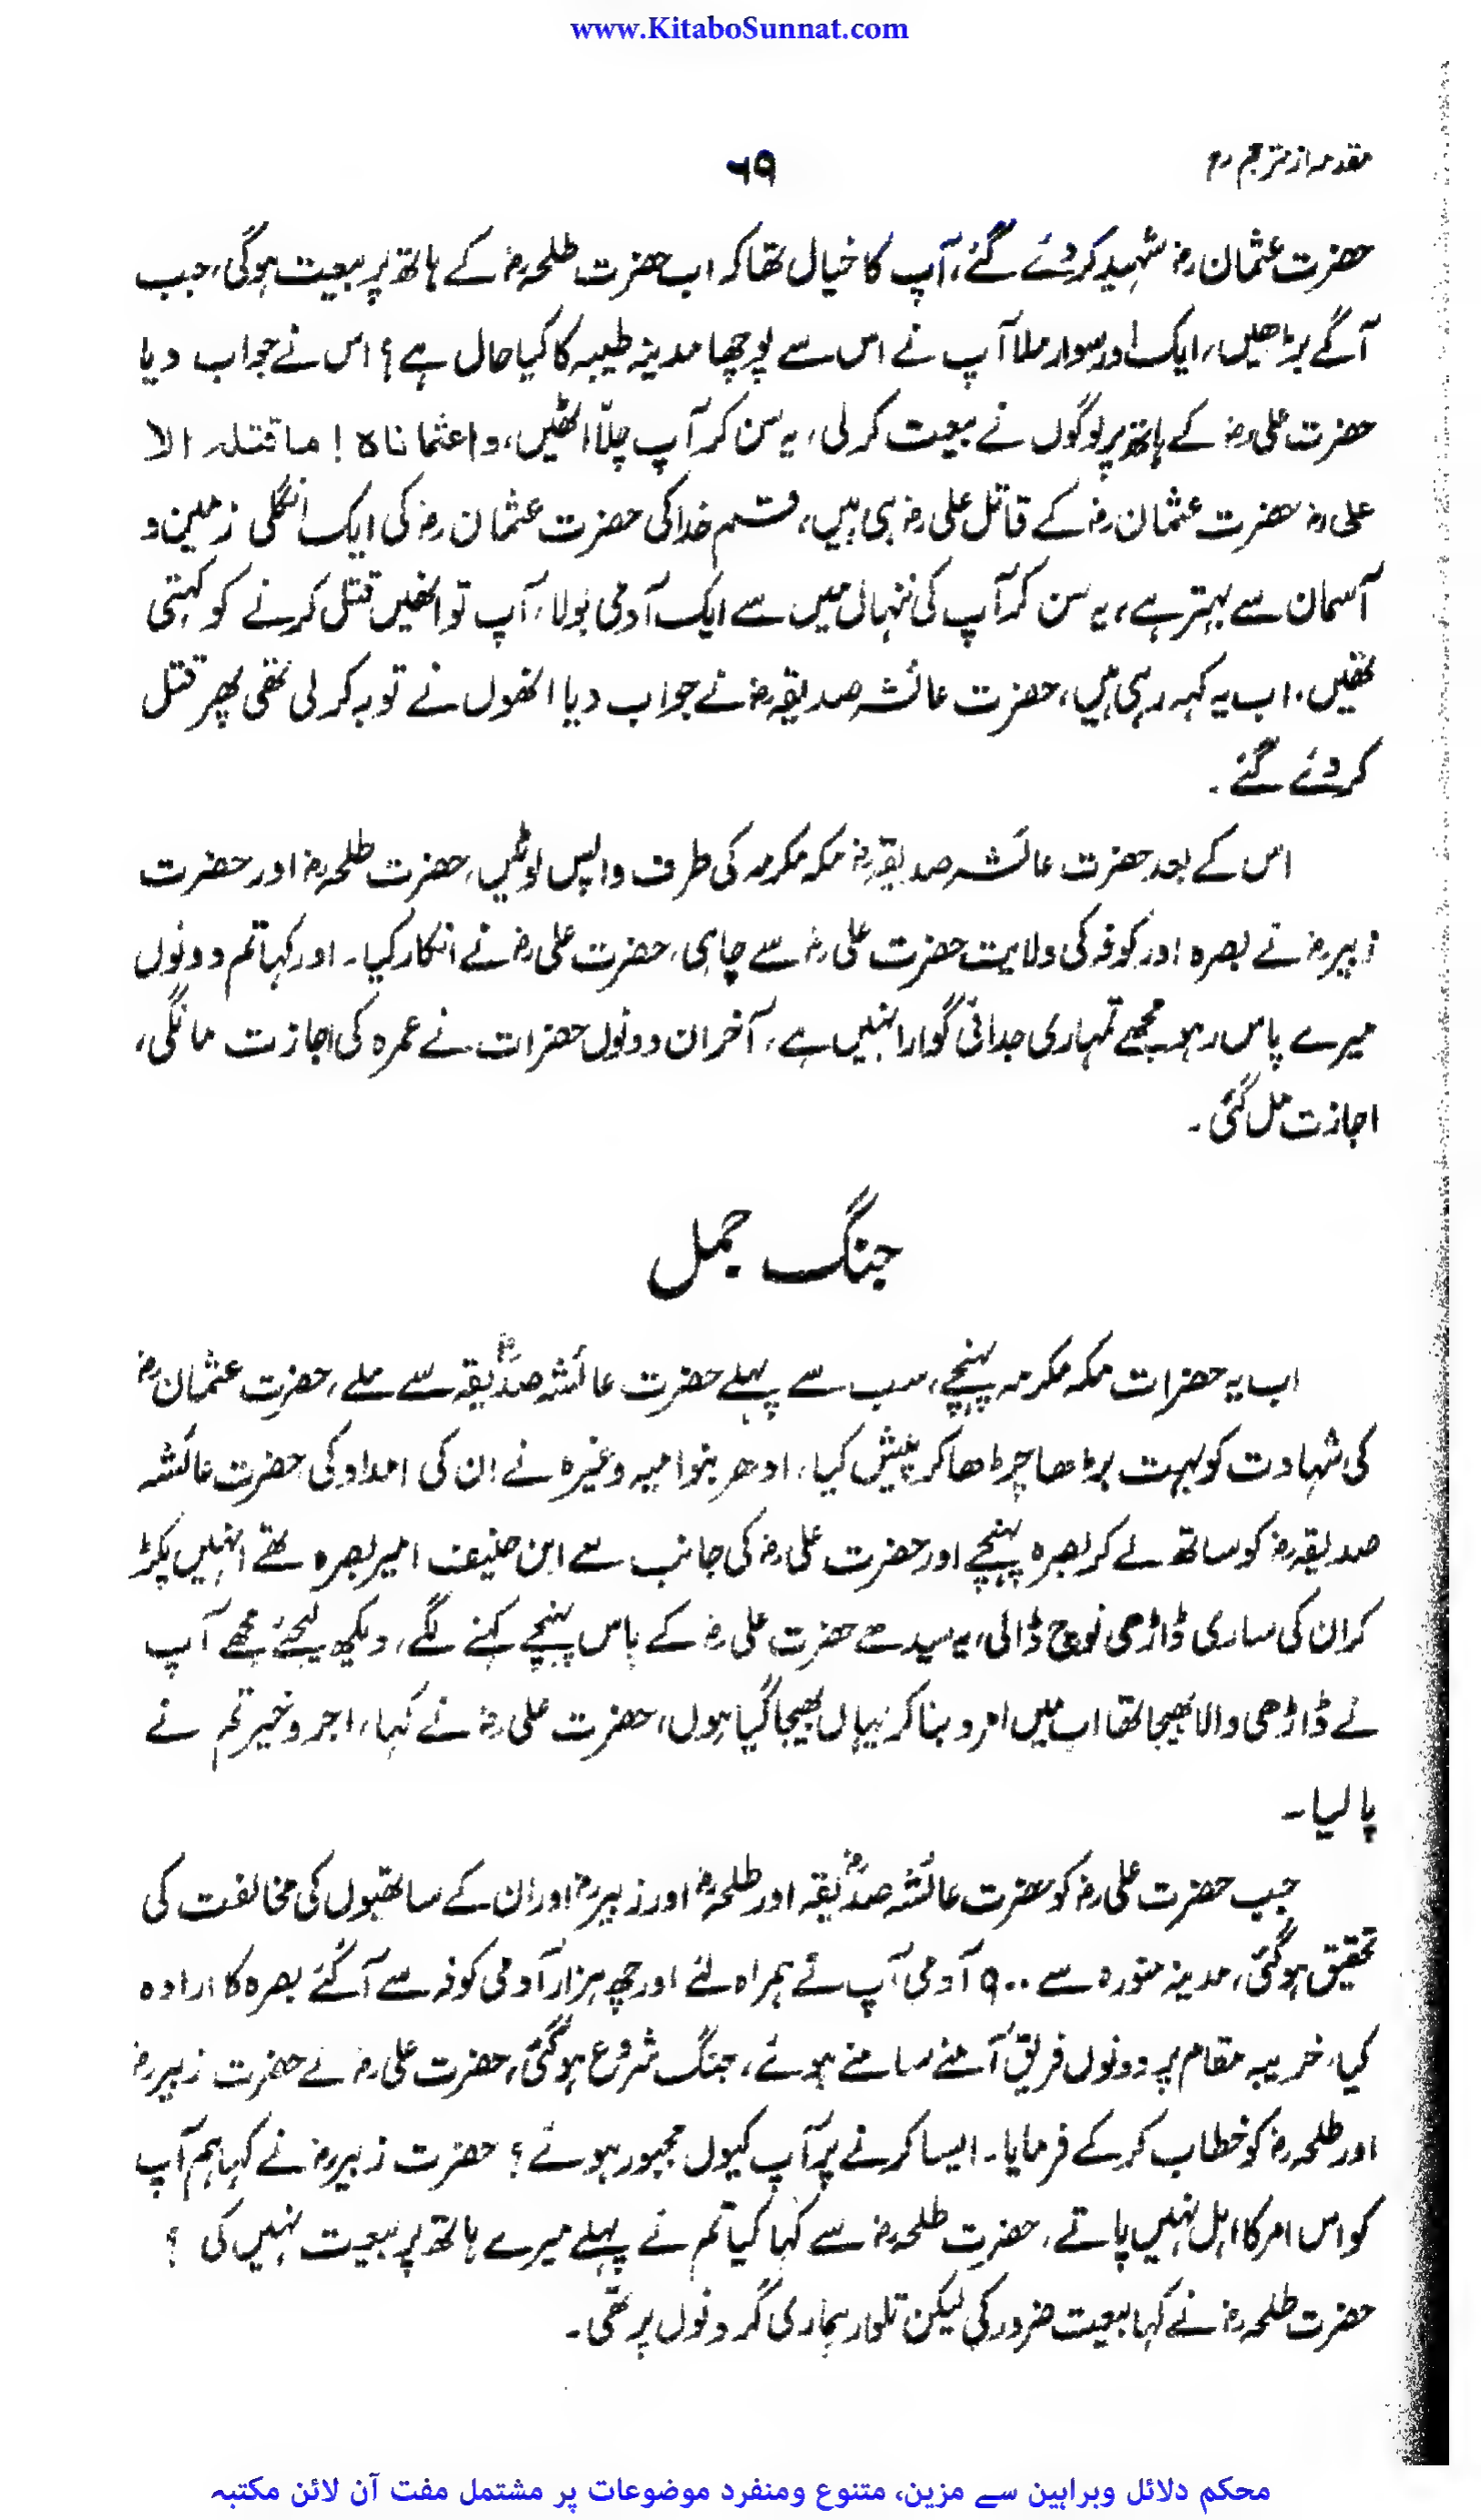 www.KitaboSunnat.com
مقدمہ از مترجم رم
۶۹
حضرت عثمان رض شہید کر دئے گئے، آپ کا خیال تھا کہ اب حضرت طلحہ رض کے ہاتھ پر بیعت ہوگی، جب
آگے بڑھیں، ایک اور سوار ملا آپ نے اس سے پوچھا مدینہ طیبہ کا کیا حال ہے؟ اس نے جواب دیا
حضرت علی رض کے ہاتھ پر لوگوں نے بیعت کر لی، یہ سن کر آپ چلّا اٹھیں، واعثماناہ! ما قتلہ الا
علی رض حضرت عثمان رض کے قاتل علی رض ہی ہیں، قسم خدا کی حضرت عثمان رض کی ایک انگلی زمین و
آسمان سے بہتر ہے، یہ سن کر آپ کی ننہال میں سے ایک آدمی بولا، آپ تو انھیں قتل کرنے کو کہتی
تھیں، اب یہ کہہ رہی ہیں، حضرت عائشہ صدیقہ رض نے جواب دیا انھوں نے توبہ کر لی تھی پھر قتل
کر دئے گئے۔
اس کے بعد حضرت عائشہ صدیقہ رض مکہ مکرمہ کی طرف واپس لوٹیں، حضرت طلحہ رض اور حضرت
زبیر رض نے بصرہ اور کوفہ کی ولایت حضرت علی رض سے چاہی، حضرت علی رض نے انکار کیا۔ اور کہا تم دونوں
میرے پاس رہو مجھے تمہاری جدائی گوارا نہیں ہے، آخر ان دونوں حضرات نے عمرہ کی اجازت مانگی،
اجازت مل گئی۔
جنگ جمل
اب یہ حضرات مکہ مکرمہ پہنچے، سب سے پہلے حضرت عائشہ صدیقہؓ سے ملے، حضرت عثمان رض
کی شہادت کو بہت بڑھا چڑھا کر پیش کیا، ادھر بنو امیہ وغیرہ نے ان کی امداد کی حضرت عائشہ
صدیقہ رض کو ساتھ لے کر بصرہ پہنچے اور حضرت علی رض کی جانب سے ابن حنیف امیر بصرہ تھے انہیں پکڑ
کر ان کی ساری ڈاڑھی نوچ ڈالی، یہ سیدھے حضرت علی رض کے پاس پہنچے کہنے لگے، دیکھ لیجئے مجھے آپ
نے ڈاڑھی والا بھیجا تھا اب میں امرد بنا کر یہاں بھیجا گیا ہوں، حضرت علی رض نے کہا، اجر وخیر تم نے
پا لیا۔
جب حضرت علی رض کو حضرت عائشہ صدیقہؓ اور طلحہ رض اور زبیر رض اور ان کے ساتھیوں کی مخالفت کی
تحقیق ہوگئی، مدینہ منورہ سے ۹۰۰ آدمی آپ نے ہمراہ لئے اور چھ ہزار آدمی کوفہ سے آگئے بصرہ کا ارادہ
کیا، خریبہ مقام پر دونوں فریق آمنے سامنے ہوئے، جنگ شروع ہوگئی، حضرت علی رض نے حضرت زبیر رض
اور طلحہ رض کو خطاب کر کے فرمایا۔ ایسا کرنے پر آپ کیوں مجبور ہوئے؟ حضرت زبیر رض نے کہا ہم آپ
کو اس امر کا اہل نہیں پاتے، حضرت طلحہ رض سے کہا کیا تم نے پہلے میرے ہاتھ پر بیعت نہیں کی؟
حضرت طلحہ رض نے کہا بیعت ضرور کی لیکن تلوار ہماری گردنوں پر تھی۔
محکم دلائل وبراہین سے مزین، متنوع ومنفرد موضوعات پر مشتمل مفت آن لائن مکتبہ